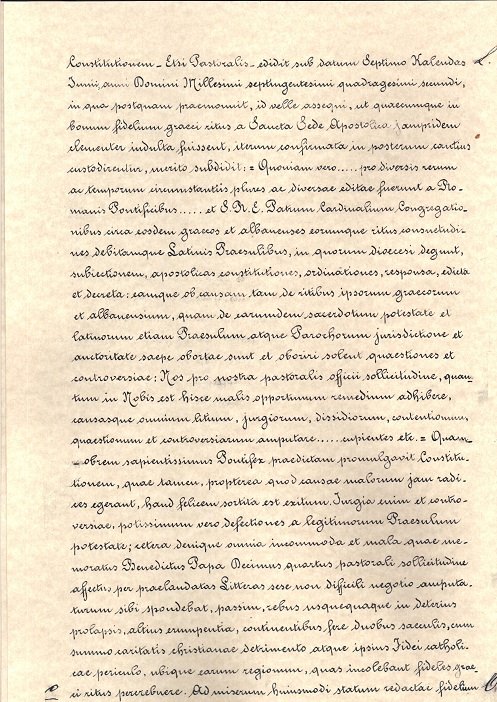 Constitutionem - Etsi Pastoralis - edidit sub datum Septimo Kalendas
Junii, anni Domini Millesimi septingentesimi quadragesimi secundi,
in qua postquam praemonuit, id velle assequi, ut quaecumque in
bonum fidelium graeci ritus a Sancta Sede Apostolica jampridem
clementer indulta fuissent, iterum confirmata in posterum cautius
custodirentur, merito subdidit: = Quoniam vero..... pro diversis rerum
ac temporum circumstantiis plures ac diversae editae fuerunt a Ro-
manis Pontificibus..... et S.R.E. Patrum Cardinalium Congregatio-
nibus circa eosdem graecos et albanenses eorumque ritus consuetudi-
nes debitamque Latinis Praesulibus, in quorum dioecesi degunt,
subiectionem, apostolicas constitutiones, ordinationes, responsa, edicta
et decreta: eamque ob causam tam de ritibus ipsorum graecorum
et albanensium, quam de earumdem sacerdotum potestate et
latinorum etiam Praesulum atque Parochorum jurisdictione et
auctoritate saepe obortae sunt et oboriri solent quaestiones et
controversiae: Nos pro nostra pastoralis officii sollicitudine, quan-
tum in Nobis est hisce malis opportunum remedium adhibere,
causasque omnium litium, jurgiorum, dissidiorum, contentionum,
quaestionum et controversiarum amputare..... cupientes etc. = Quam-
-obrem sapientissimus Pontifex praedictam promulgavit Constitu-
tionem, quae tamen, propterea quod causae malorum jam radi-
ces egerant, haud felicem sortita est exitum. Jurgia enim et contro-
versiae, potissimum vero defectiones a legitimorum Praesulum
potestate; cetera denique omnia incommoda et mala quae me-
moratus Benedictus Papa Decimus quartus pastorali sollicitudine
affectus per praelaudatas Litteras sese non difficili negotio amputa-
turum sibi spondebat, passim, rebus usquequaque in deterius
prolapsis, altius erumpentia, continentibus fere duobus saeculis, cum
summo caritatis christianae detrimento atque ipsius Fidei catholi-
cae periculo, ubique earum regionum, quas incolebant fideles grae-
ci ritus percrebuere. Ad miserum huiusmodi statum redactae fidelium